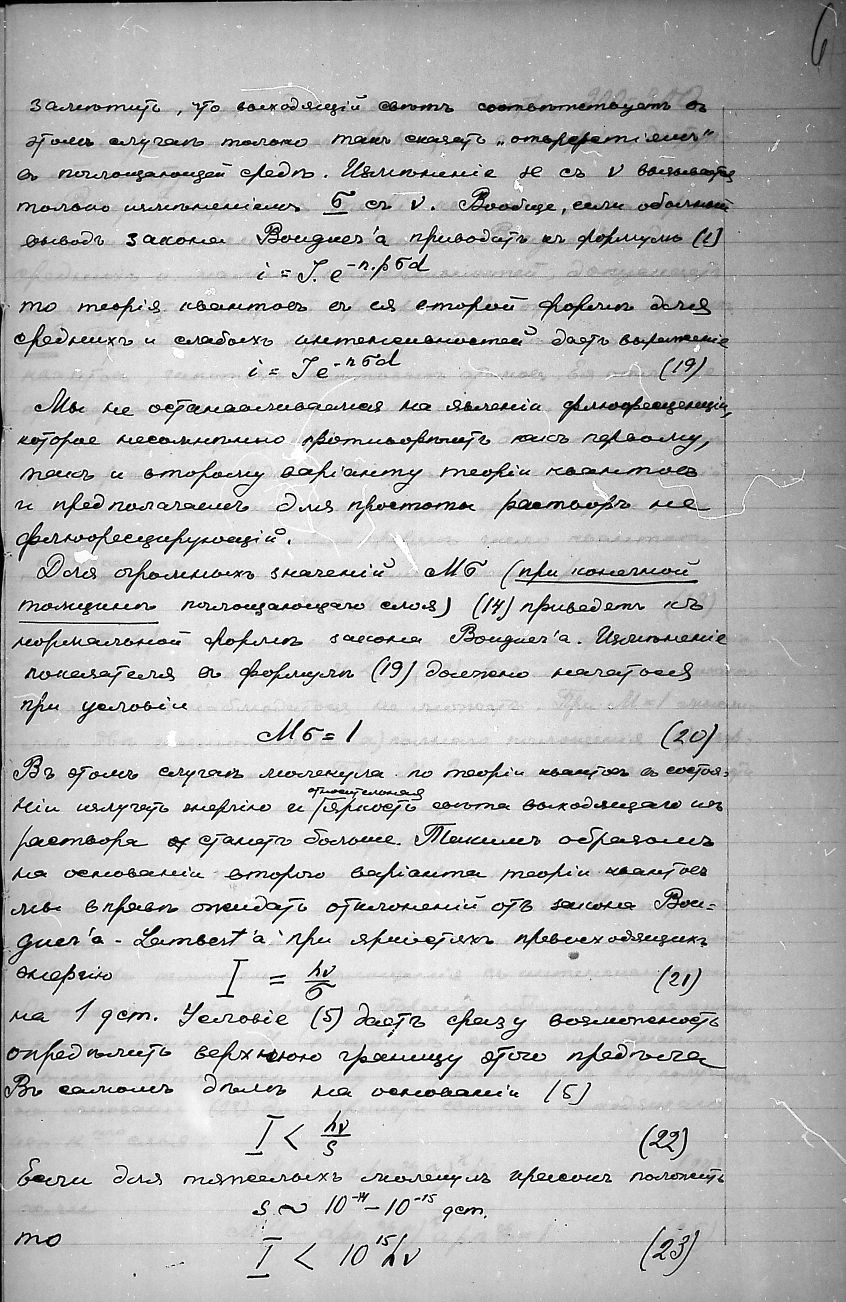 6
замѣтить, что выходящій свѣтъ соотвѣтствуетъ въ
этомъ случаѣ только такъ сказать „отверстіямъ"
въ поглощающей средѣ. Измѣненіе ϰ съ ν вызывается
только измѣненіемъ σ съ ν. Вообще, если обычный
выводъ закона Bouguer'а приводитъ къ формулѣ (1)
i = J. e^{-n.pσd}
то теорія квантовъ въ ея второй формѣ для
среднихъ и слабыхъ интенсивностей даетъ выраженіе
i = J e^{-nσd} (19)
Мы не останавливаемся на явленіи флюоресценціи,
которое несомнѣнно противорѣчитъ какъ первому,
такъ и второму варіанту теоріи квантовъ
и предполагаемъ для простоты растворъ не
флюоресцирующій.
Для огромныхъ значеній Mσ (при конечной
толщинѣ поглощающаго слоя) (14) приведетъ къ
нормальной формѣ закона Bouguer'а. Измѣненіе
показателя въ формулѣ (19) должно начаться
при условіи
Mσ = 1 (20)
Въ этомъ случаѣ молекула по теоріи квантовъ въ состоя-
ніи излучать энергію и относительная яркость свѣта выходящаго изъ
раствора станетъ больше. Такимъ образомъ
на основаніи второго варіанта теоріи квантовъ
мы вправѣ ожидать отклоненій отъ закона Bou=
guer'а - Lambert'а при яркостяхъ превосходящихъ
энергію I = hν/σ (21)
на 1 qcm. Условіе (5) даетъ сразу возможность
опредѣлить верхнюю границу этого предѣла
Въ самомъ дѣлѣ на основаніи (5)
I < hν/s (22)
Если для тяжелыхъ молекулъ красокъ положить
s ~ 10^{-14} – 10^{-15} qcm.
то I < 10^{15} hν (23)